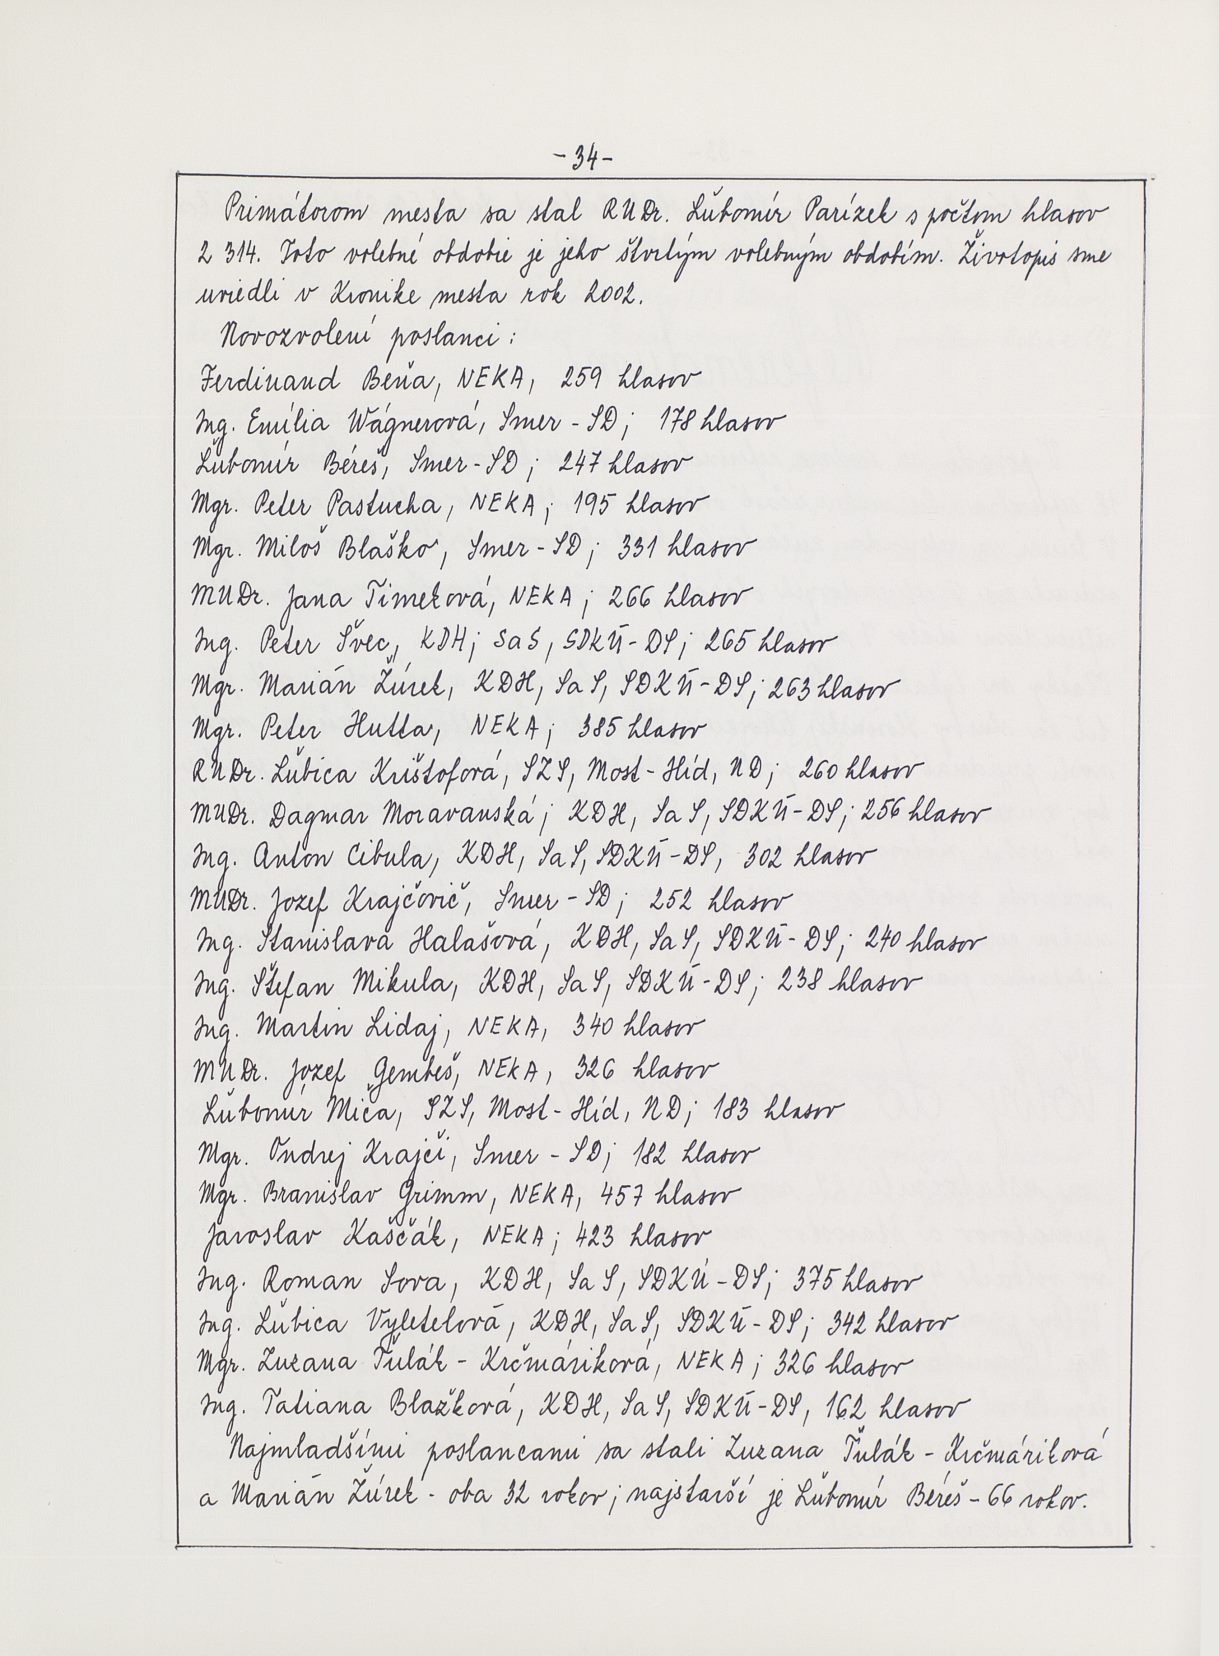 -34-
Primátorom mesta sa stal RNDr. Ľubomír Parízek s počtom hlasov
2 314. Toto volebné obdobie je jeho štvrtým volebným obdobím. Životopis sme
uviedli v Kronike mesta rok 2002.
Novozvolení poslanci :
Ferdinand Beňa, NEKA, 259 hlasov
Ing. Emília Wágnerová, Smer - SD; 178 hlasov
Ľubomír Béreš, Smer-SD; 247 hlasov
Mgr. Peter Pastucha, NEKA; 195 hlasov
Mgr. Miloš Blaško, Smer-SD; 331 hlasov
MUDr. Jana Timeková, NEKA; 266 hlasov
Ing. Peter Švec, KDH; SaS, SDKÚ-DS; 265 hlasov
Mgr. Marián Žúrek, KDH, SaS, SDKÚ-DS; 263 hlasov
Mgr. Peter Hutta, NEKA; 385 hlasov
RNDr. Ľubica Krištofová, SZS, Most-Híd, ND; 260 hlasov
MUDr. Dagmar Moravanská; KDH, SaS, SDKÚ-DS; 256 hlasov
Ing. Anton Cibula, KDH, SaS, SDKÚ-DS, 302 hlasov
MUDr. Jozef Krajčovič, Smer-SD; 252 hlasov
Ing. Stanislava Halašová, KDH, SaS, SDKÚ-DS; 240 hlasov
Ing. Štefan Mikula, KDH, SaS, SDKÚ-DS; 238 hlasov
Ing. Martin Lidaj, NEKA, 340 hlasov
MUDr. Jozef Gembeš, NEKA, 326 hlasov
Ľubomír Miča, SZS, Most-Híd, ND; 183 hlasov
Mgr. Ondrej Krajči, Smer - SD; 182 hlasov
Mgr. Branislav Grimm, NEKA, 457 hlasov
Jaroslav Kaščák, NEKA; 423 hlasov
Ing. Roman Sova, KDH, SaS, SDKÚ-DS; 375 hlasov
Ing. Ľubica Vyletelová, KDH, SaS, SDKÚ-DS; 342 hlasov
Mgr. Zuzana Ťulák - Krčmáriková, NEKA; 326 hlasov
Ing. Tatiana Blažková, KDH, SaS, SDKÚ-DS, 162 hlasov
Najmladšími poslancami sa stali Zuzana Ťulák - Krčmáriková
a Marián Žúrek - oba 32 rokov; najstarší je Ľubomír Béreš - 66 rokov.